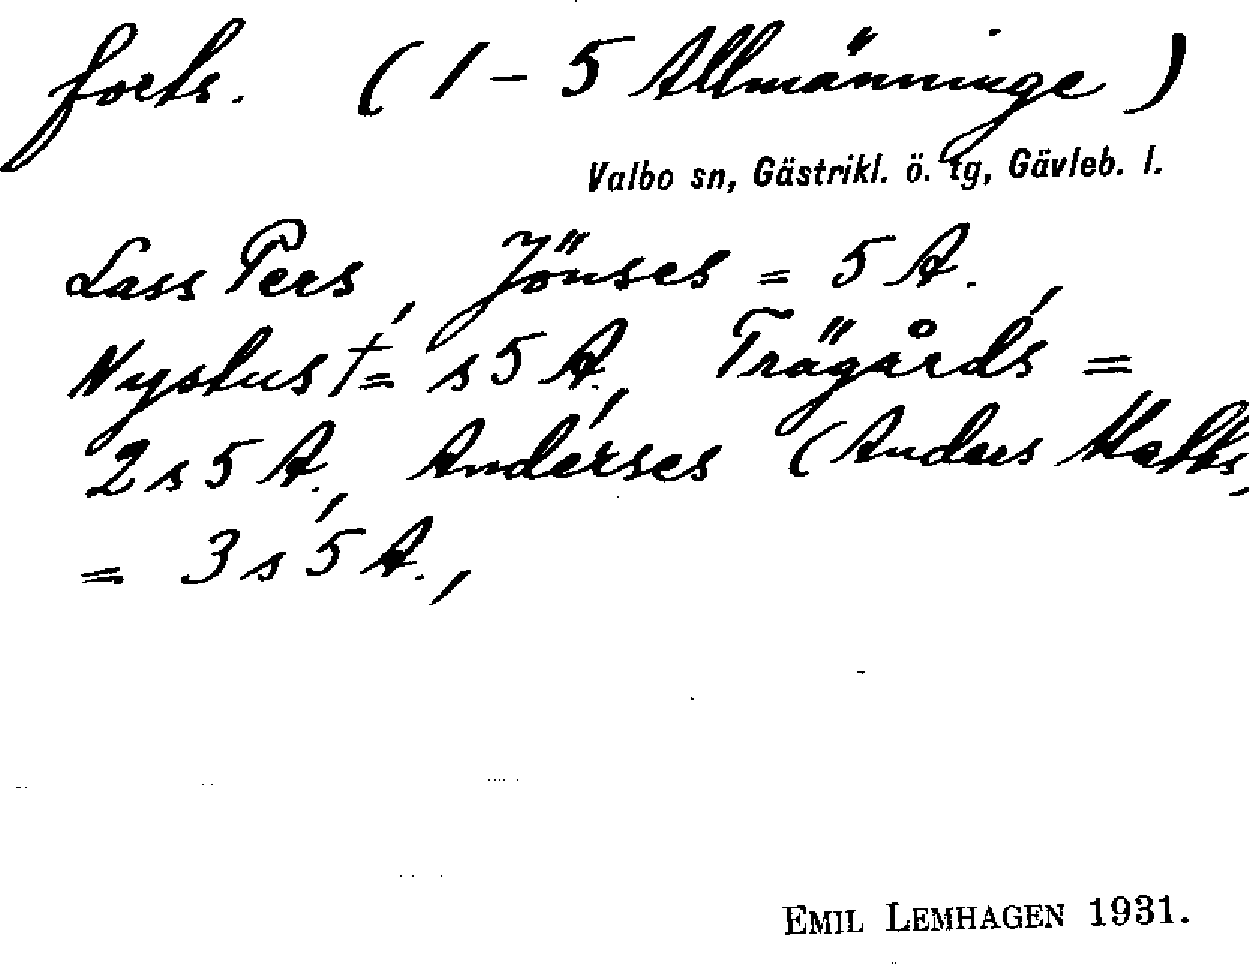 forts. (1-5 Allmänninge)
Valbo sn, Gästrikl. ö. tg, Gävleb. l.
Lass Pers, Jönses = 5 A.,
Nystus† = s 5 A., Trägårds =
2 s 5 A., Anderses (Anders Matts,
= 3 s 5 A.,
EMIL LEMHAGEN 1931.